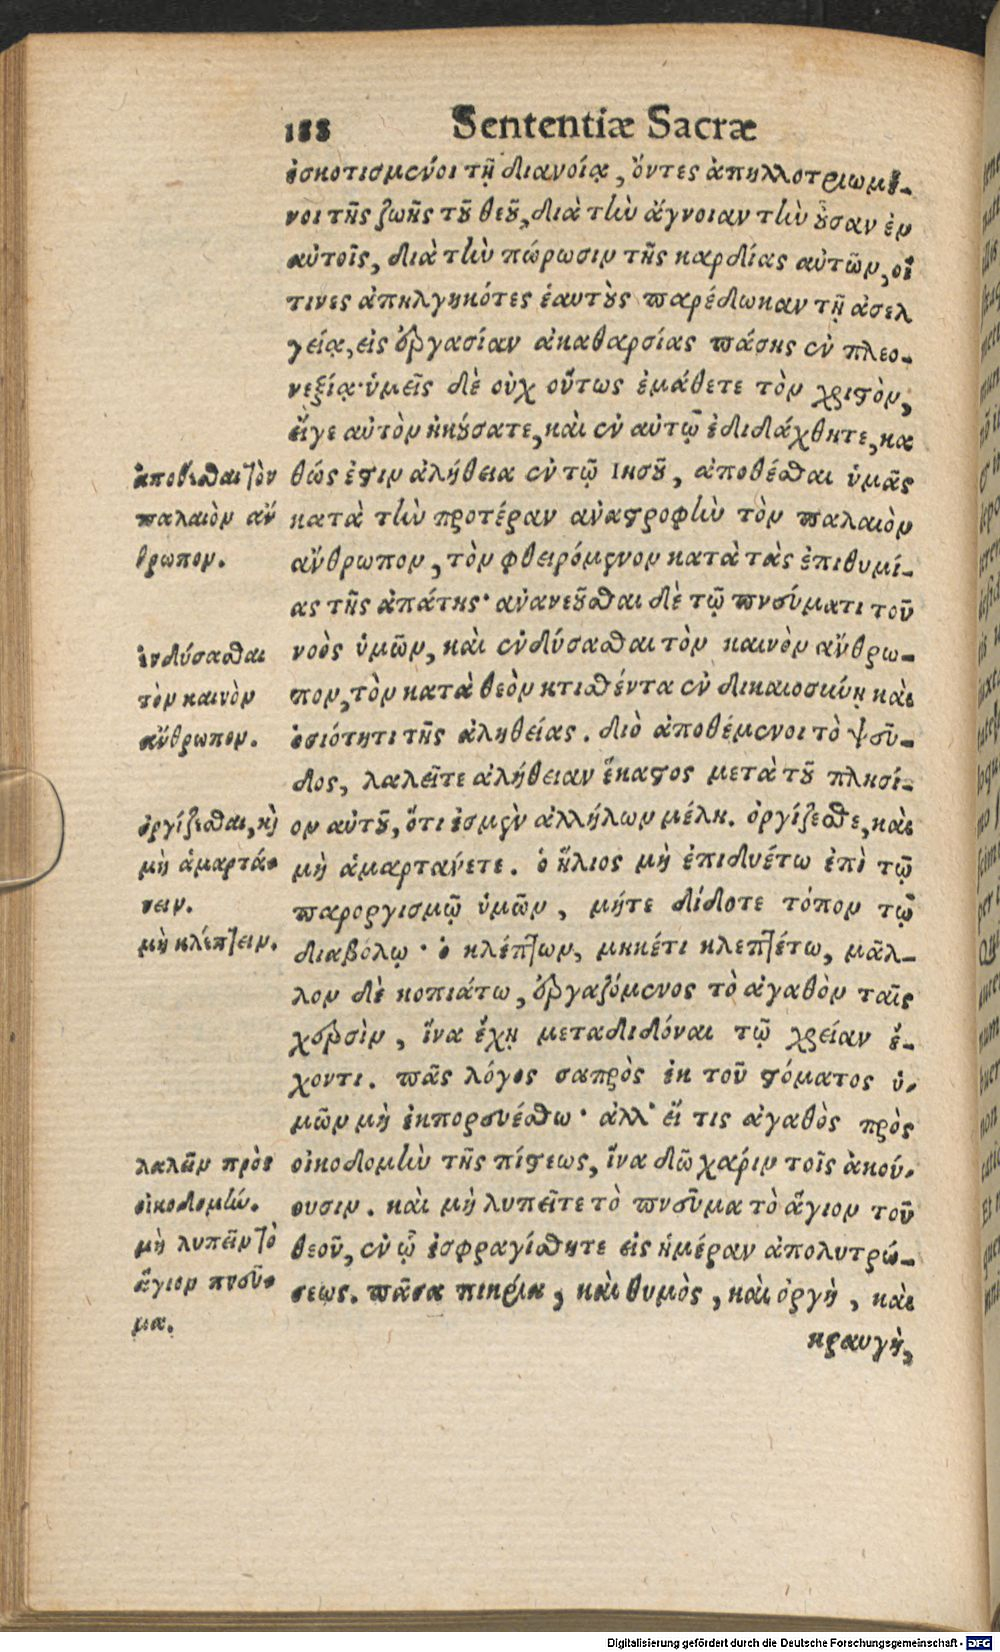 188 Sententiæ Sacræ
ἐσκοτισμένοι τῇ διανοίᾳ, ὄντες ἀπηλλοτριωμέ-
νοι τῆς ζωῆς τοῦ θεοῦ, διὰ τὴν ἄγνοιαν τὴν οὖσαν ἐν
αὐτοῖς, διὰ τὴν πώρωσιν τῆς καρδίας αὐτῶν, οἵ
τινες ἀπηλγηκότες ἑαυτοὺς παρέδωκαν τῇ ἀσελ
γείᾳ, εἰς ἐργασίαν ἀκαθαρσίας πάσης ἐν πλεο-
νεξίᾳ· ὑμεῖς δὲ οὐχ οὕτως ἐμάθετε τὸν χριστὸν,
εἴγε αὐτὸν ἠκούσατε, καὶ ἐν αὐτῷ ἐδιδάχθητε, κα
θώς ἐστιν ἀλήθεια ἐν τῷ Ιησοῦ, ἀποθέσθαι ὑμᾶς
κατὰ τὴν προτέραν ἀναστροφὴν τὸν παλαιὸν
ἄνθρωπον, τὸν φθειρόμενον κατὰ τὰς ἐπιθυμί-
ας τῆς ἀπάτης· ἀνανεοῦσθαι δὲ τῷ πνεύματι τοῦ
νοὸς ὑμῶν, καὶ ἐνδύσασθαι τὸν καινὸν ἄνθρω-
πον, τὸν κατὰ θεὸν κτισθέντα ἐν δικαιοσύνῃ καὶ
ὁσιότητι τῆς ἀληθείας. διὸ ἀποθέμενοι τὸ ψεῦ-
δος, λαλεῖτε ἀλήθειαν ἕκαστος μετὰ τοῦ πλησί-
ον αὐτοῦ, ὅτι ἐσμὲν ἀλλήλων μέλη. ὀργίζεσθε, καὶ
μὴ ἁμαρτάνετε. ὁ ἥλιος μὴ ἐπιδυέτω ἐπὶ τῷ
παροργισμῷ ὑμῶν, μήτε δίδοτε τόπον τῷ
διαβόλῳ· ὁ κλέπτων, μηκέτι κλεπτέτω, μᾶλ-
λον δὲ κοπιάτω, ἐργαζόμενος τὸ ἀγαθὸν ταῖς
χερσὶν, ἵνα ἔχῃ μεταδιδόναι τῷ χρείαν ἔ-
χοντι. πᾶς λόγος σαπρὸς ἐκ τοῦ στόματος ὑ-
μῶν μὴ ἐκπορευέσθω· ἀλλ' εἴ τις ἀγαθὸς πρὸς
οἰκοδομὴν τῆς πίστεως, ἵνα δῶ χάριν τοῖς ἀκού-
ουσιν. καὶ μὴ λυπεῖτε τὸ πνεῦμα τὸ ἅγιον τοῦ
θεοῦ, ἐν ᾧ ἐσφραγίσθητε εἰς ἡμέραν ἀπολυτρώ-
σεως. πᾶσα πικρία, καὶ θυμὸς, καὶ ὀργὴ, καὶ
κραυγὴ,
ἀποθέσθαι τὸν
παλαιὸν ἄν
θρωπον.
ἐνδύσασθαι
τὸν καινὸν
ἄνθρωπον.
ὀργίζεσθαι, καὶ
μὴ ἁμαρτά-
νειν.
μὴ κλέπτειν.
λαλεῖν πρὸς
οἰκοδομήν.
μὴ λυπεῖν τὸ
ἅγιον πνεῦ-
μα.
Digitalisierung gefördert durch die Deutsche Forschungsgemeinschaft - DFG